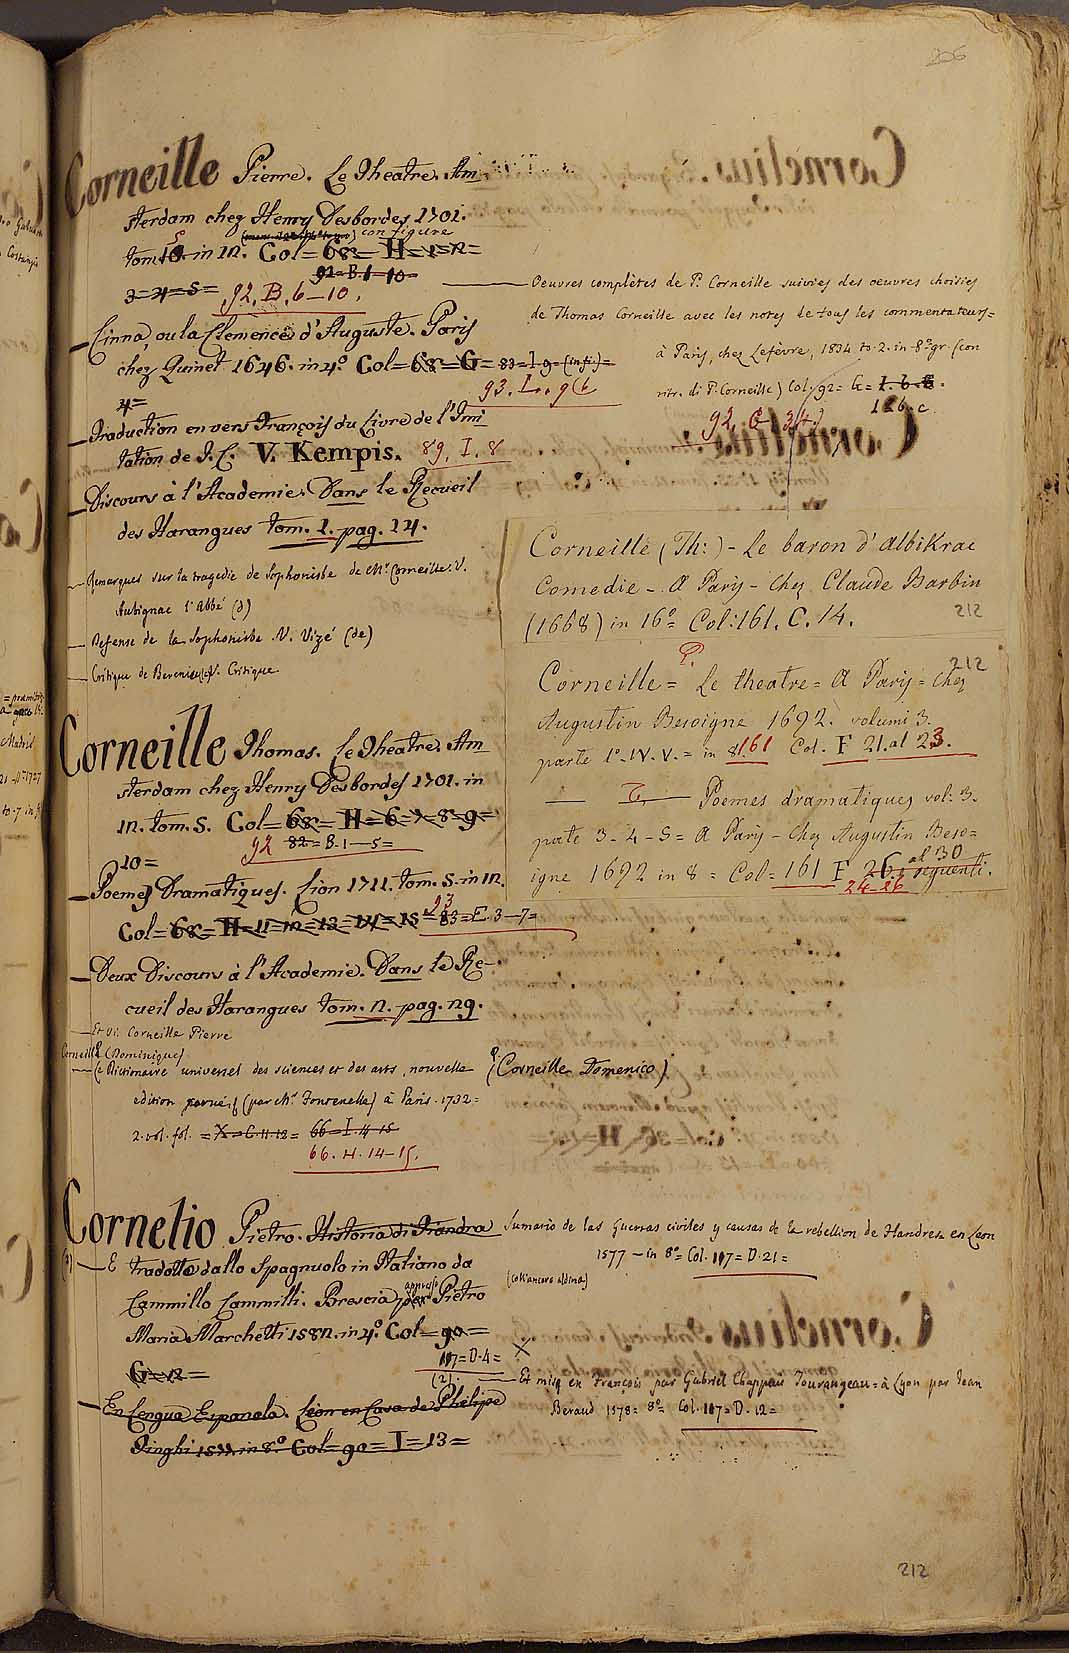 206
Corneille Pierre. Le Theatre. Am
sterdam chez Henry Desbordes 1701.
con figure
tom. 5 in 12. Col= 68= H=1=2=
92=B.1-10
3=4=5= 92.B.6-10.
Cinna, ou la Clemence d'Auguste. Paris
chez Quinet 1646. in 4º Col=68=G= 83=I.9=(in fi.)=
4= 93.I..96
Traduction en vers François du Livre de l'Imi
tation de J. C. V. Kempis. 89. I. 8
Discours à l'Academie. Dans le Recueil
des Harangues tom. 1. pag. 14.
Remarques sur la tragedie de Sophonisbe de Mr. Corneille. V.
Aubignac l'Abbé (d)
Defense de la Sophonisbe. V. Vizé (de)
Critique de Berenice. V. Critique
Oeuvres complètes de P. Corneille suivies des oeuvres choisies
de Thomas Corneille avec les notes de tous les commentateurs=
à Paris, chez Lefèvre, 1834 to. 2. in-8º gr. (con
ritr. di P. Corneille) Col. 92= G=
126.c
92. G 3(4)
Corneille (Th:) - Le baron d'AlbiKrac
Comedie - A Paris - Chez Claude Barbin
(1668) in 16º= Col: 161. C. 14.
212
P.
212
Corneille = Le theatre = A Paris = Chez
Augustin Besoigne 1692. volumi 3.
parte 1ª. IV. V. = in 8. 161 Col. F 21. al 23.
— T. — Poemes dramatiques vol: 3.
parte 3-4-5= A Paris - Chez Augustin Beso=
al 30
igne 1692 in 8 = Col= 161 F 26. e seguenti.
24-26
Corneille Thomas. Le Theatre. Am
sterdam chez Henry Desbordes 1701. in
12. tom. 5. Col= 68= H=6=7=8=9=
10= 92 82=B.1-5=
Poemes Dramatiques. Lion 1711. tom. 5. in 12.
93
Col=68=H=11=12=13=14=15=83=E.3-7=
Deux Discours à l'Academie. Dans le Re-
cueil des Harangues tom. 2. pag. 29.
Et vi. Corneille Pierre
Corneille (Dominique)
Le Dictionaire universel des sciences et des arts, nouvelle
(Corneille Domenico)
edition (par Mr. Fontenelle) à Paris. 1732=
2. vol. fol. = X=C.11.12= 66=I.14-15
66. H. 14-15.
Cornelio Pietro. Historia di Fiandra
Sumario de las Guerras civiles y causas de la rebellion de Flandres. en Leon
1577 - in 8º= Col. 107= D. 21=
E tradotta dallo Spagnuolo in Italiano da
(coll'ancora aldina)
Cammillo Cammilli. Brescia appresso Pietro
Maria Marchetti 1582. in 4º. Col=90=
G=12= 107=D.4=
(2)
X
Et mis en François par Gabriel Chappuis Tourangeau= à Lyon par Jean
Beraud 1578= 8º= Col. 107= D. 12=
En Lengua Espanola. Leon en Casa de Phelipe
Tinghi 1577. in 8º Col=90=I=13=
212